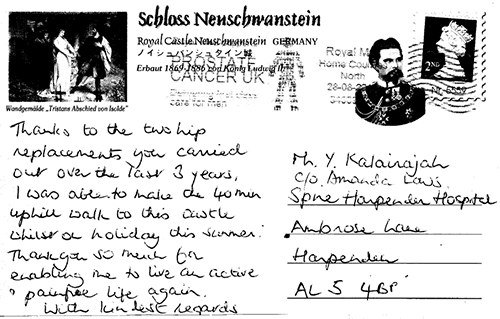 Schloss Neuschwanstein
Royal Castle Neuschwanstein GERMANY
ノイシュバンシュタイン城
Erbaut 1869-1886 von König Ludwig II.
Wandgemälde „Tristans Abschied von Isolde"
PROSTATE
CANCER UK
care for men
Royal M
Home Coun
North
2ND
Thanks to the two hip
replacements you carried
out over the last 3 years,
I was able to make the 40min
uphill walk to this castle
whilst on holiday this summer!
Thankyou so much for
enabling me to live an active
painfree life again.
With kindest regards
Mr. Y. Kalairajah
c/o Amanda
Spire Harpenden Hospital
Ambrose Lane
Harpenden
AL5 4BP